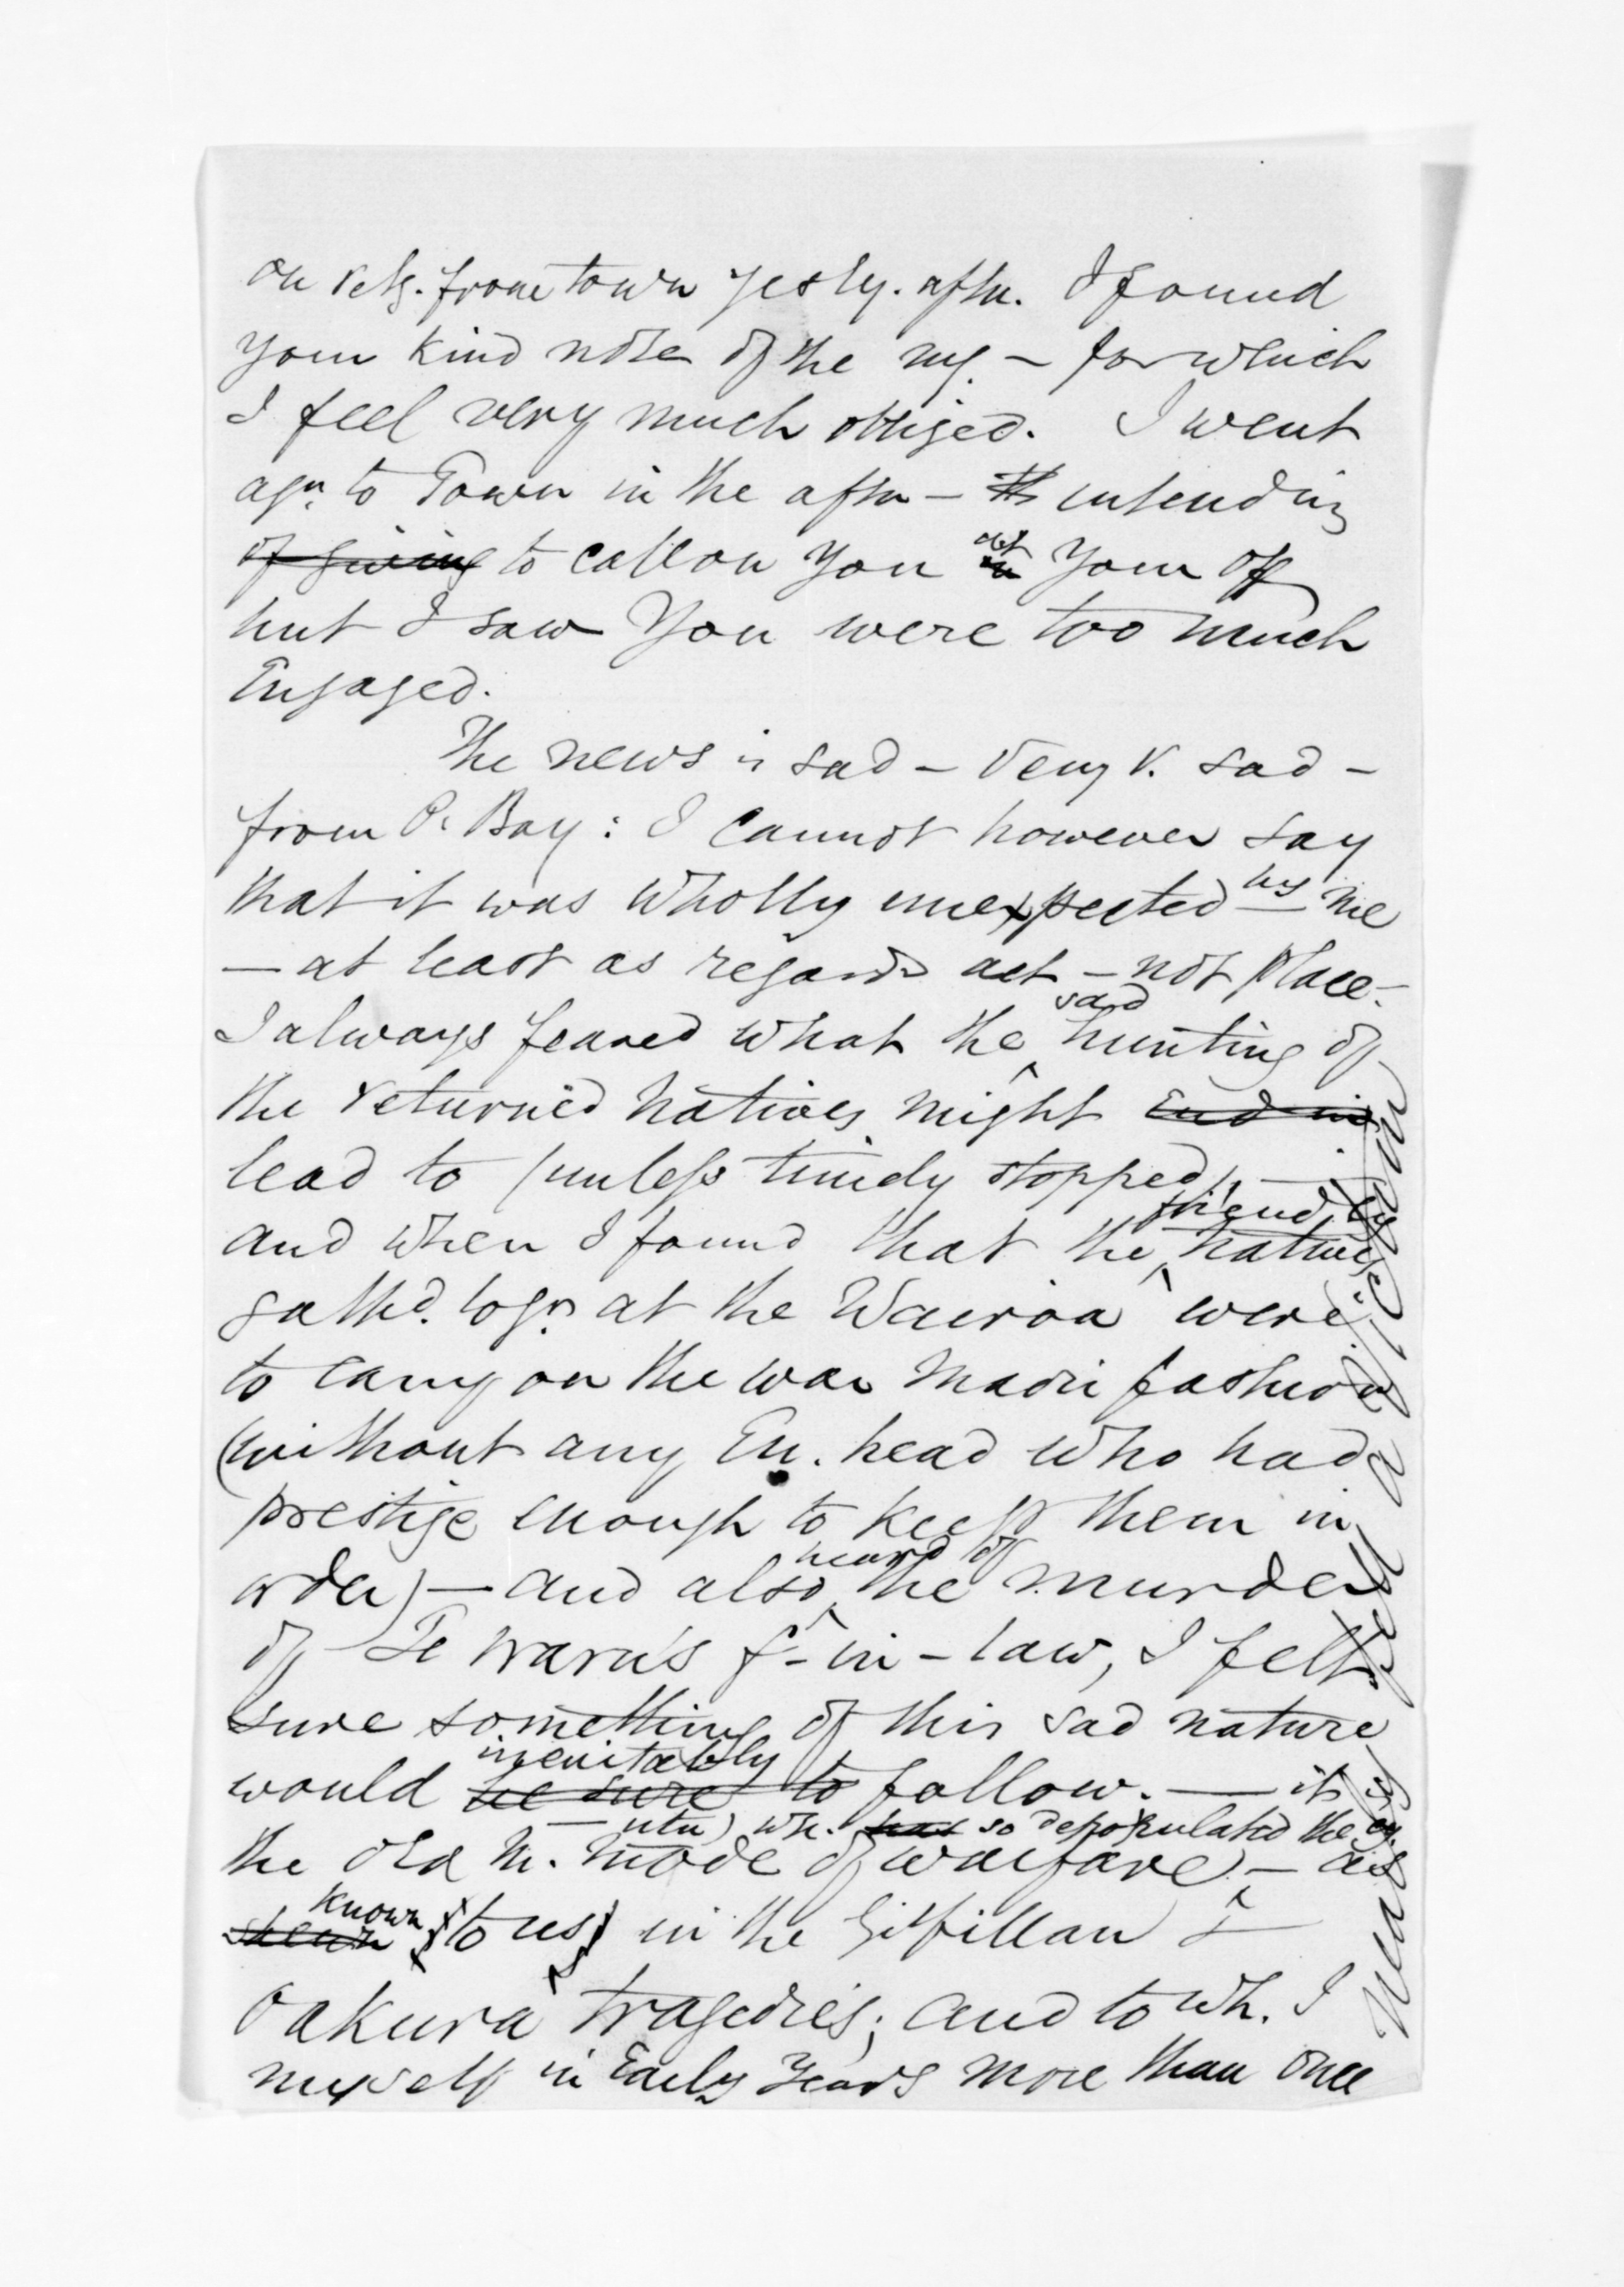 On retg. from town yesty. aftn. I found
your kind note of the mg. – for which
I feel very much obliged. I went
agn. to Town in the aftn – intending
of giving to call on You at Your off
but I saw You were too much
Engaged.
The news is sad – Very v. sad –
from P. Bay: I cannot however say
that it was wholly unexpected by me
– at least as regards act – not place –
I always feared what the said hunting of
the returned natives might end in
lead to (unless timely stopped) –
and when I found that the friendly natives
gathd. togr. at the Wairoa were
to carry on the war Maori fashion
(without any En. head who had
prestige enough to keep them in
order) – and also heard of the murder
of Te Waru's f-in-law, I felt
sure something of this sad nature
would be sure to inevitably follow. — it is
the old N. mode of warfare – (utu) wh. has so depopulated the cy. – as
shewn known to us in the Gilfillan &
Oakura tragedies; and to wh. I
myself in Early Years more than once
near fell a victim